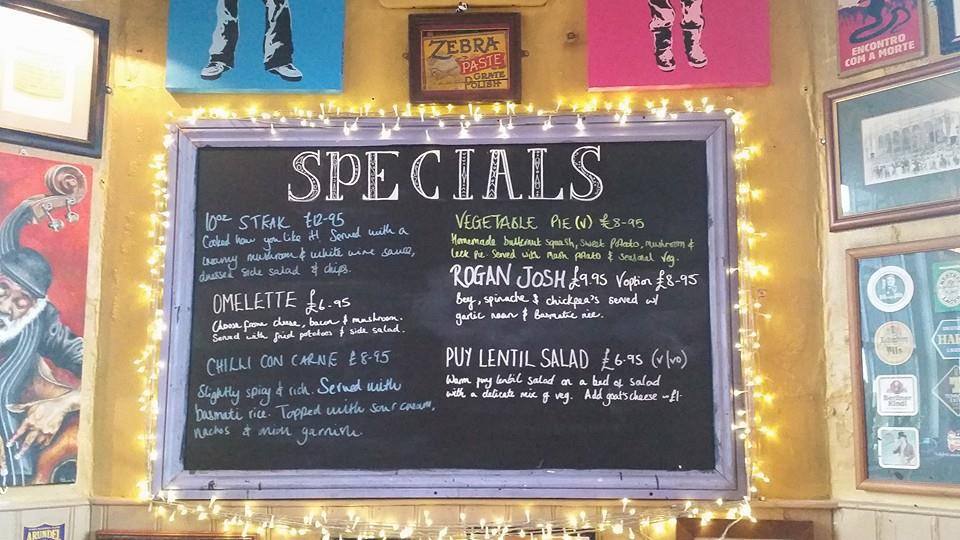 ZEBRA
PASTE
GRATE
POLISH
ENCONTRO
COM A MORTE
SPECIALS
10oz STEAK £12-95
Cooked how you like it! Served with a
creamy mushroom & white wine sauce,
dressed side salad & chips.
OMELETTE £6-95
Choose from cheese, bacon & mushroom.
Served with fried potatoes & side salad.
CHILLI CON CARNE £8-95
Slightly spicy & rich. Served with
basmati rice. Topped with sour cream,
nachos & garnish.
VEGETABLE PIE (V) £8-95
Homemade butternut squash, sweet potato, mushroom &
leek pie. Served with mash potato & seasonal veg.
ROGAN JOSH £9.95 V option £8-95
Beef, spinach & chickpea's served w/
garlic naan & Basmatic rice.
PUY LENTIL SALAD £6.95 (v/vo)
Warm puy lentil salad on a bed of salad
with a delicate mix of veg. Add goats cheese - £1-
London
Pils
Berliner
Kindl
ARUNDEL